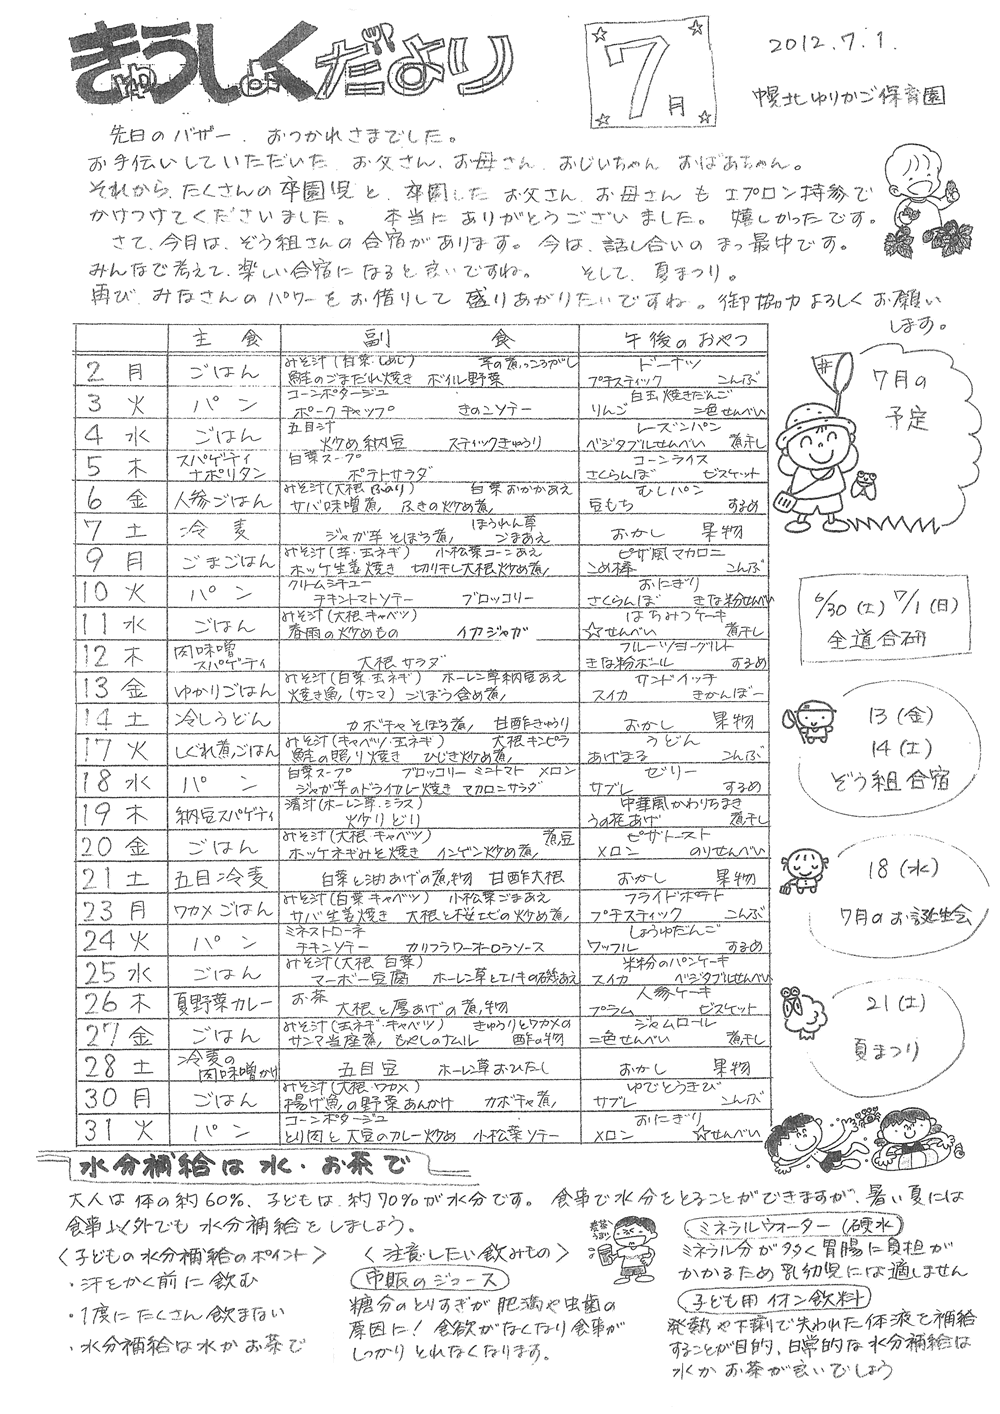 きゅうしょくだより
7月
2012.7.1.
幌北ゆりかご保育園
先日のバザー、おつかれさまでした。
お手伝いしていただいた、お父さん、お母さん、おじいちゃん おばあちゃん。
それから、たくさんの卒園児と、卒園したお父さん、お母さんもエプロン持参で
かけつけてくださいました。 本当にありがとうございました。嬉しかったです。
さて、今月は、ぞう組さんの合宿があります。今は、話し合いのまっ最中です。
みんなで考えて、楽しい合宿になると良いですね。 そして、夏まつり。
再び、みなさんのパワーをお借りして盛りあがりたいですね。御協力よろしくお願い
します。
主食 副食 午後のおやつ
2 月 ごはん みそ汁(白菜・しめじ) 芋の煮っころがし 鮭のごまだれ焼き ボイル野菜 ドーナツ プチスティック こんぶ
3 火 パン コーンポタージュ ポークチャップ きのこソテー 白玉焼きだんご りんご 二色せんべい
4 水 ごはん 五目汁 炒め納豆 スティックきゅうり レーズンパン ベジタブルせんべい 煮干し
5 木 スパゲティナポリタン 白菜スープ ポテトサラダ コーンライス さくらんぼ ビスケット
6 金 人参ごはん みそ汁(大根・ふのり) 白菜おかかあえ サバ味噌煮 ふきの炒め煮 むしパン 豆もち するめ
7 土 冷麦 ジャガ芋そぼろ煮 ほうれん草ごまあえ おかし 果物
9 月 ごまごはん みそ汁(芋・玉ネギ) 小松菜コーンあえ ホッケ生姜焼き 切り干し大根炒め煮 ピザ風マカロニ こめ棒 こんぶ
10 火 パン クリームシチュー チキントマトソテー ブロッコリー おにぎり さくらんぼ きな粉せんべい
11 水 ごはん みそ汁(大根・キャベツ) 春雨の炒めもの イカジャガ はちみつケーキ ☆せんべい 煮干し
12 木 肉味噌スパゲティ 大根サラダ フルーツヨーグルト きな粉ボール するめ
13 金 ゆかりごはん みそ汁(白菜・玉ネギ) ホーレン草納豆あえ 焼き魚(サンマ) ごぼう含め煮 サンドイッチ スイカ きかんぼー
14 土 冷しうどん カボチャそぼろ煮 甘酢きゅうり おかし 果物
17 火 しぐれ煮ごはん みそ汁(キャベツ・玉ネギ) 大根キンピラ 鮭の照り焼き ひじき炒め煮 うどん あげまる こんぶ
18 水 パン 白菜スープ ブロッコリー ミニトマト メロン ジャガ芋のドライカレー焼き マカロニサラダ ゼリー サブレ するめ
19 木 納豆スパゲティ 清汁(ホーレン草・シラス) 炒りどり 中華風かわりちまき うの花あげ 煮干し
20 金 ごはん みそ汁(大根・キャベツ) 煮豆 ホッケネギみそ焼き インゲン炒め煮 ピザトースト メロン のりせんべい
21 土 五目冷麦 白菜と油あげの煮物 甘酢大根 おかし 果物
23 月 ワカメごはん みそ汁(白菜・キャベツ) 小松菜ごまあえ サバ生姜焼き 大根と桜エビの炒め煮 フライドポテト プチスティック こんぶ
24 火 パン ミネストローネ チキンソテー カリフラワーオーロラソース しょうゆだんご ワッフル するめ
25 水 ごはん みそ汁(大根・白菜) マーボー豆腐 ホーレン草とエノキの磯あえ 米粉のパンケーキ スイカ ベジタブルせんべい
26 木 夏野菜カレー お茶 大根と厚あげの煮物 人参ケーキ プラム ビスケット
27 金 ごはん みそ汁(玉ネギ・キャベツ) きゅうりとワカメの酢の物 サンマ当座煮 もやしのナムル ジャムロール 二色せんべい 煮干し
28 土 冷麦の肉味噌かけ 五目豆 ホーレン草おひたし おかし 果物
30 月 ごはん みそ汁(大根・ワカメ) 揚げ魚の野菜あんかけ カボチャ煮 ゆでとうきび サブレ こんぶ
31 火 パン コーンポタージュ とり肉と大豆のカレー炒め 小松菜ソテー おにぎり メロン ☆せんべい
7月の
予定
6/30(土) 7/1(日)
全道合研
13(金)
14(土)
ぞう組合宿
18(水)
7月のお誕生会
21(土)
夏まつり
水分補給は水・お茶で
大人は体の約60%、子どもは、約70%が水分です。食事で水分をとることができますが、暑い夏には
食事以外でも水分補給をしましょう。
〈子どもの水分補給のポイント〉
・汗をかく前に飲む
・1度にたくさん飲まない
・水分補給は水かお茶で
〈注意したい飲みもの〉
市販のジュース
糖分のとりすぎが肥満や虫歯の
原因に! 食欲がなくなり食事が
しっかりとれなくなります。
ミネラルウォーター(硬水)
ミネラル分が多く胃腸に負担が
かかるため乳幼児には適しません
子ども用イオン飲料
発熱や下痢で失われた体液を補給
することが目的、日常的な水分補給は
水かお茶が良いでしょう